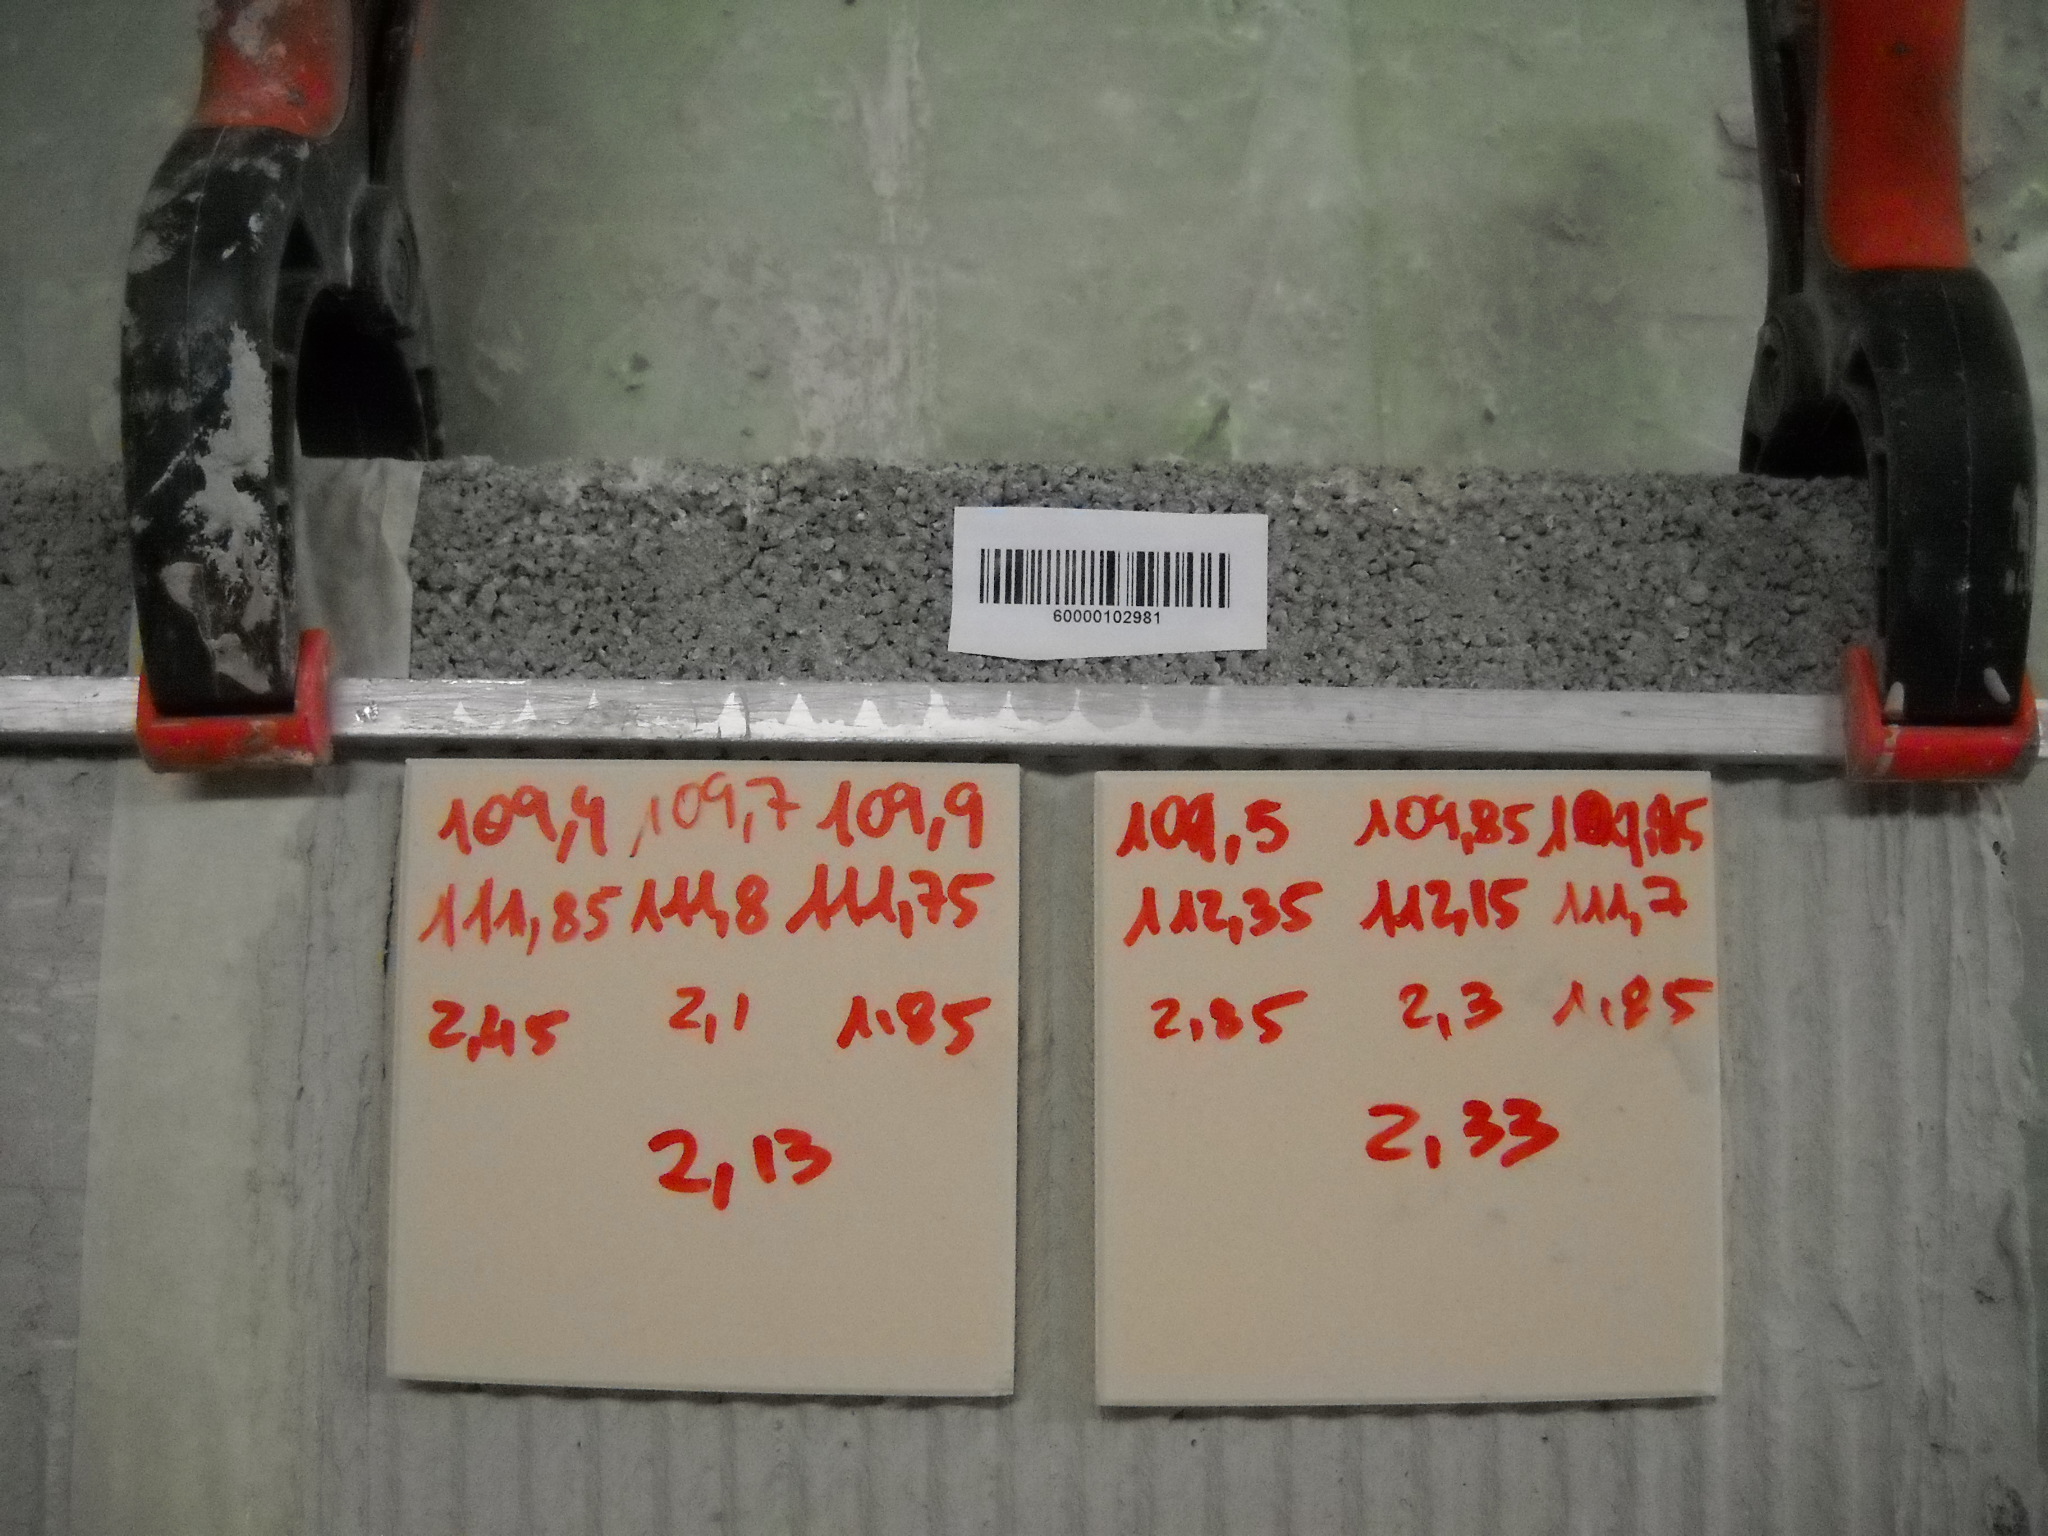 60000102981
109,4 109,7 109,9
111,85 111,8 111,75
2,45 2,1 1,85
2,13
109,5 109,85 109,85
112,35 112,15 111,7
2,85 2,3 1,85
2,33